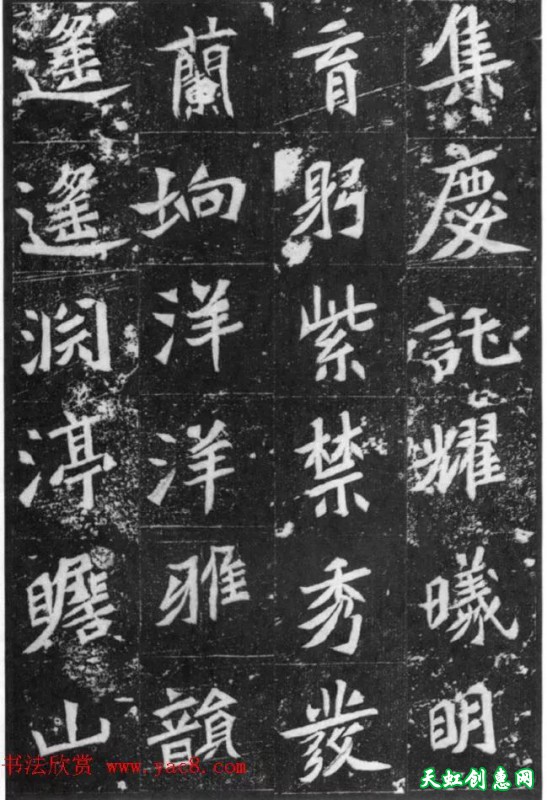 集慶託耀曦明
育躬紫禁秀發
蘭坰洋洋雅韻
遙遙淵渟瞻山
书法欣赏 www.yac8.com
天虹创惠网